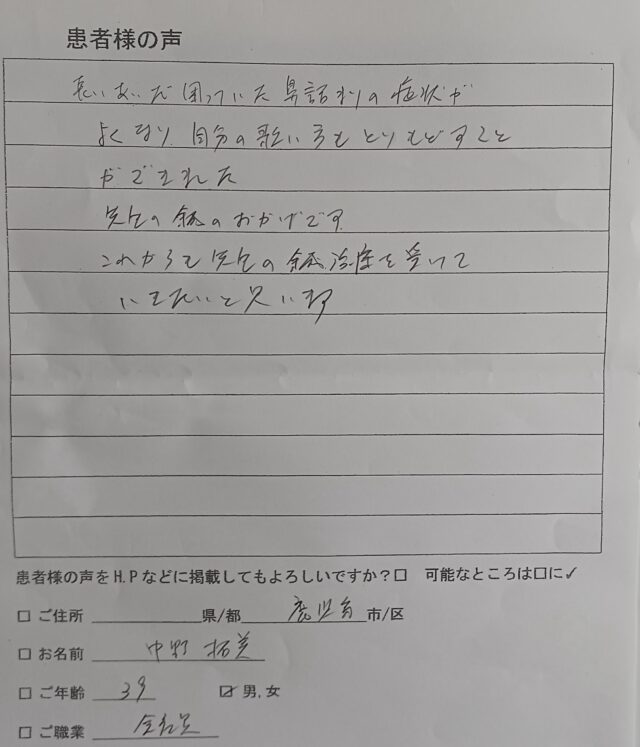 患者様の声
長いあいだ困っていた鼻詰まりの症状が
よくなり、自分の歌い方もとりもどすこと
ができました
先生の鍼のおかげです
これからも先生の鍼治療を受けて
いきたいと思います
患者様の声をH.Pなどに掲載してもよろしいですか?□ 可能なところは□に✓
□ ご住所 県/都 鹿児島 市/区
□ お名前 中野 拓美
□ ご年齢 39 ☑ 男,女
□ ご職業 会社員